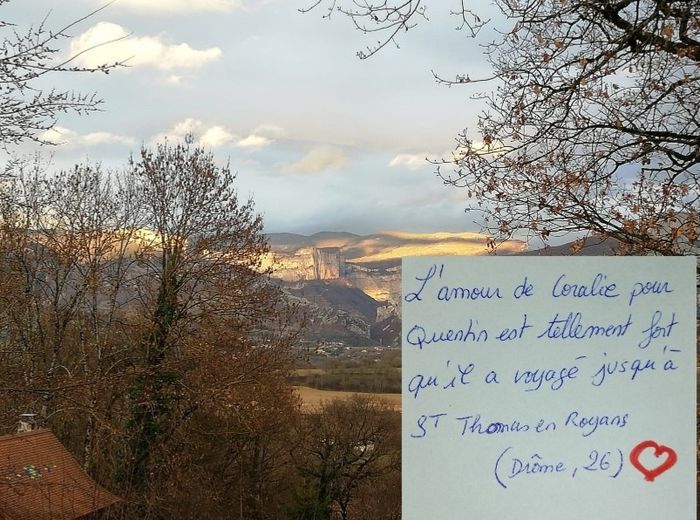 L'amour de Coralie pour
Quentin est tellement fort
qu'il a voyagé jusqu'à
ST Thomas en Royans
(Drôme, 26)